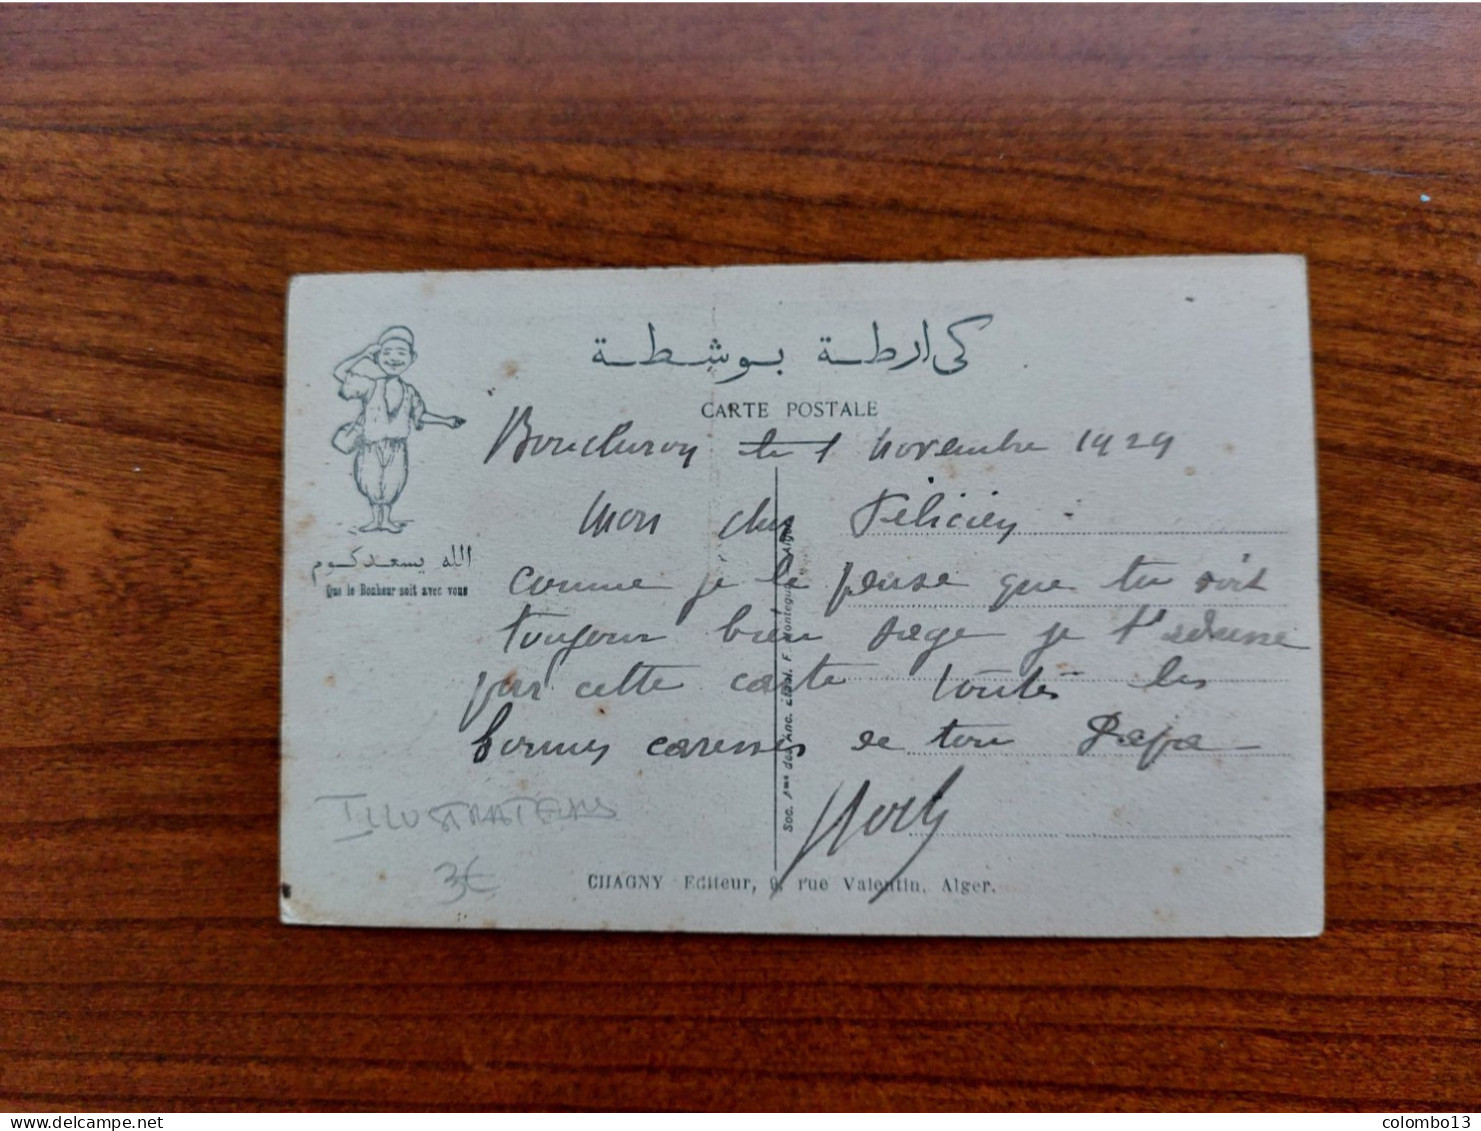 كارطة بوشطة
CARTE POSTALE
le 1 novembre 1929
Mon cher Félicien
الله يسعدكوم
Que le Bonheur soit avec vous
comme je le pense que tu soit
toujour bien sage je t'adresse
par cette carte toutes les
bonnes caresses de ton Papa
ILLUSTRATEURS
3€
CHAGNY Editeur, 9, rue Valentin, Alger.
delcampe.net
colombo13